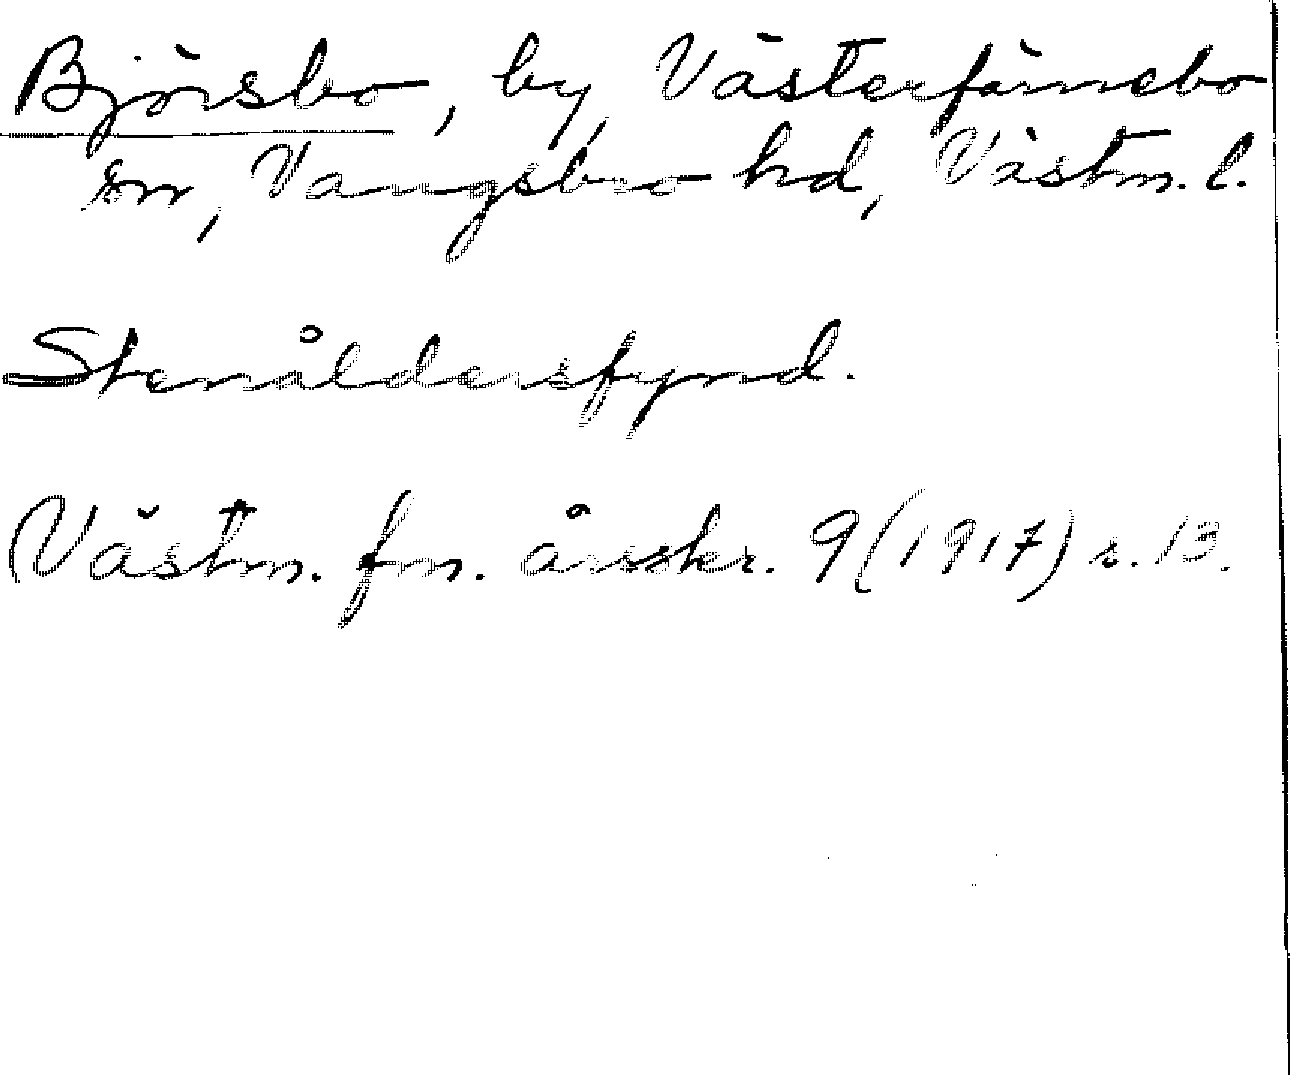 Björsbo, by, Västerfärnebo
sn, Vangsbro hd, Västm. l.
Stenåldersfynd.
Västm. fm. årsskr. 9 (1917) s. 13.